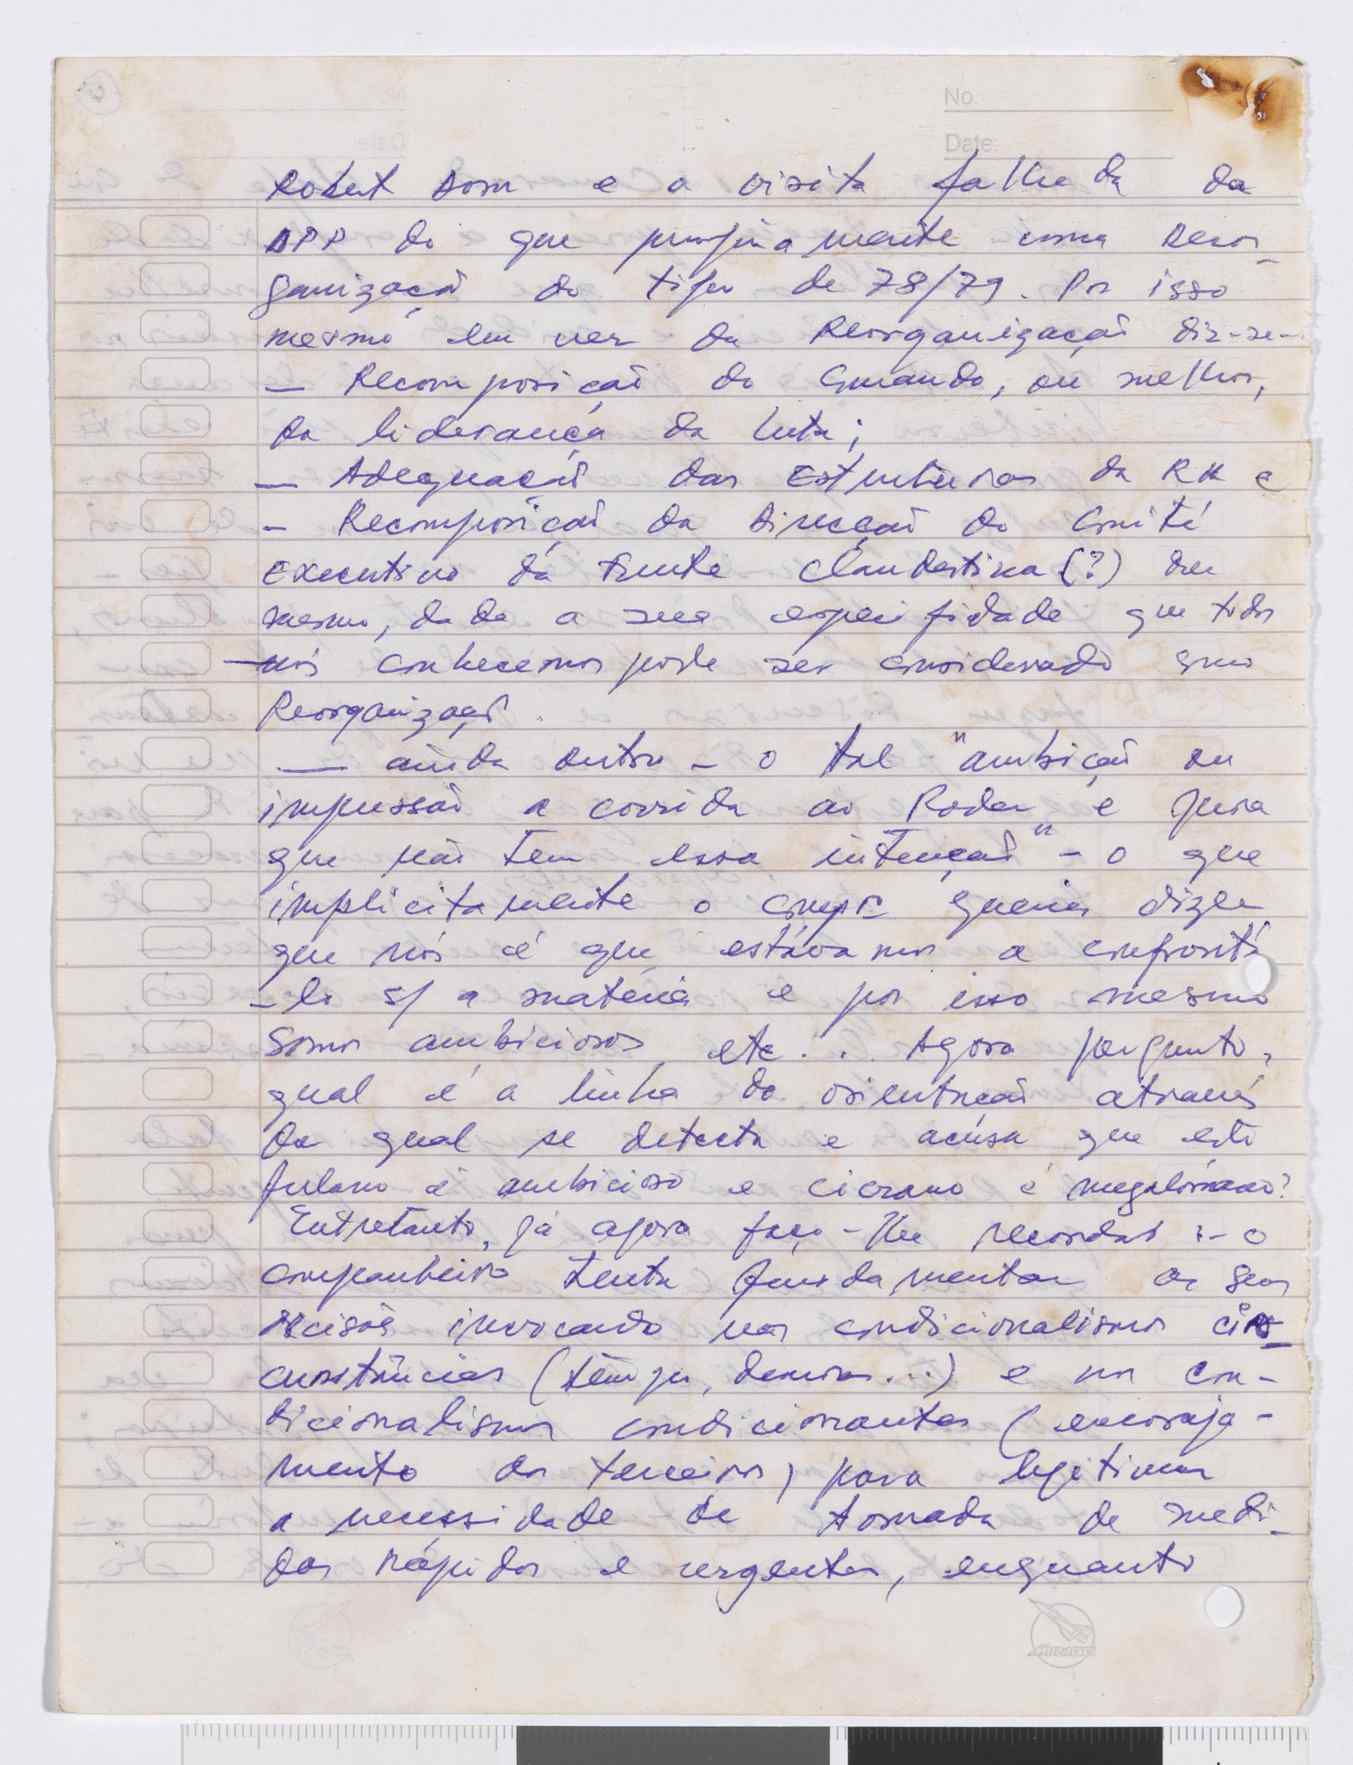 No.
Date:
Robert Dom e a visita falhada da
DPP do que propriamente uma Reor-
ganização do tipo de 78/79. Por isso
mesmo em vez da Reorganização diz-se-
— Recomposição do Comando, ou melhor,
da liderança da luta;
— Adequação das Estruturas da RN e
- Recomposição da Direcção do Comité
Executivo da Frente Clandestina (?) ou
mesmo, dada a sua especifidade que todos
nós conhecemos pode ser considerado como
Reorganização.
— ainda outro - o tal "ambição ou
impressão a corrida ao Poder e jura
que não tem essa intenção" - o que
implicitamente o compº queria dizer
que nós é que estávamos a confrontá
-lo s/ a matéria e por isso mesmo
somos ambiciosos, etc... Agora pergunto,
qual é a linha de orientação através
da qual se detecta e acusa que este
fulano é ambicioso e cicrano é megalómano?
Entretanto, já agora faço-lhe recordar :- o
companheiro tenta fundamentar as suas
decisões invocando nos condicionalismos cir-
cunstâncias (tempo, demoras...) e nos con-
dicionalismos condicionantes (encoraja-
mento dos terceiros) para legitimar
a necessidade de tomada de medi-
das rápidas e urgentes, enquanto